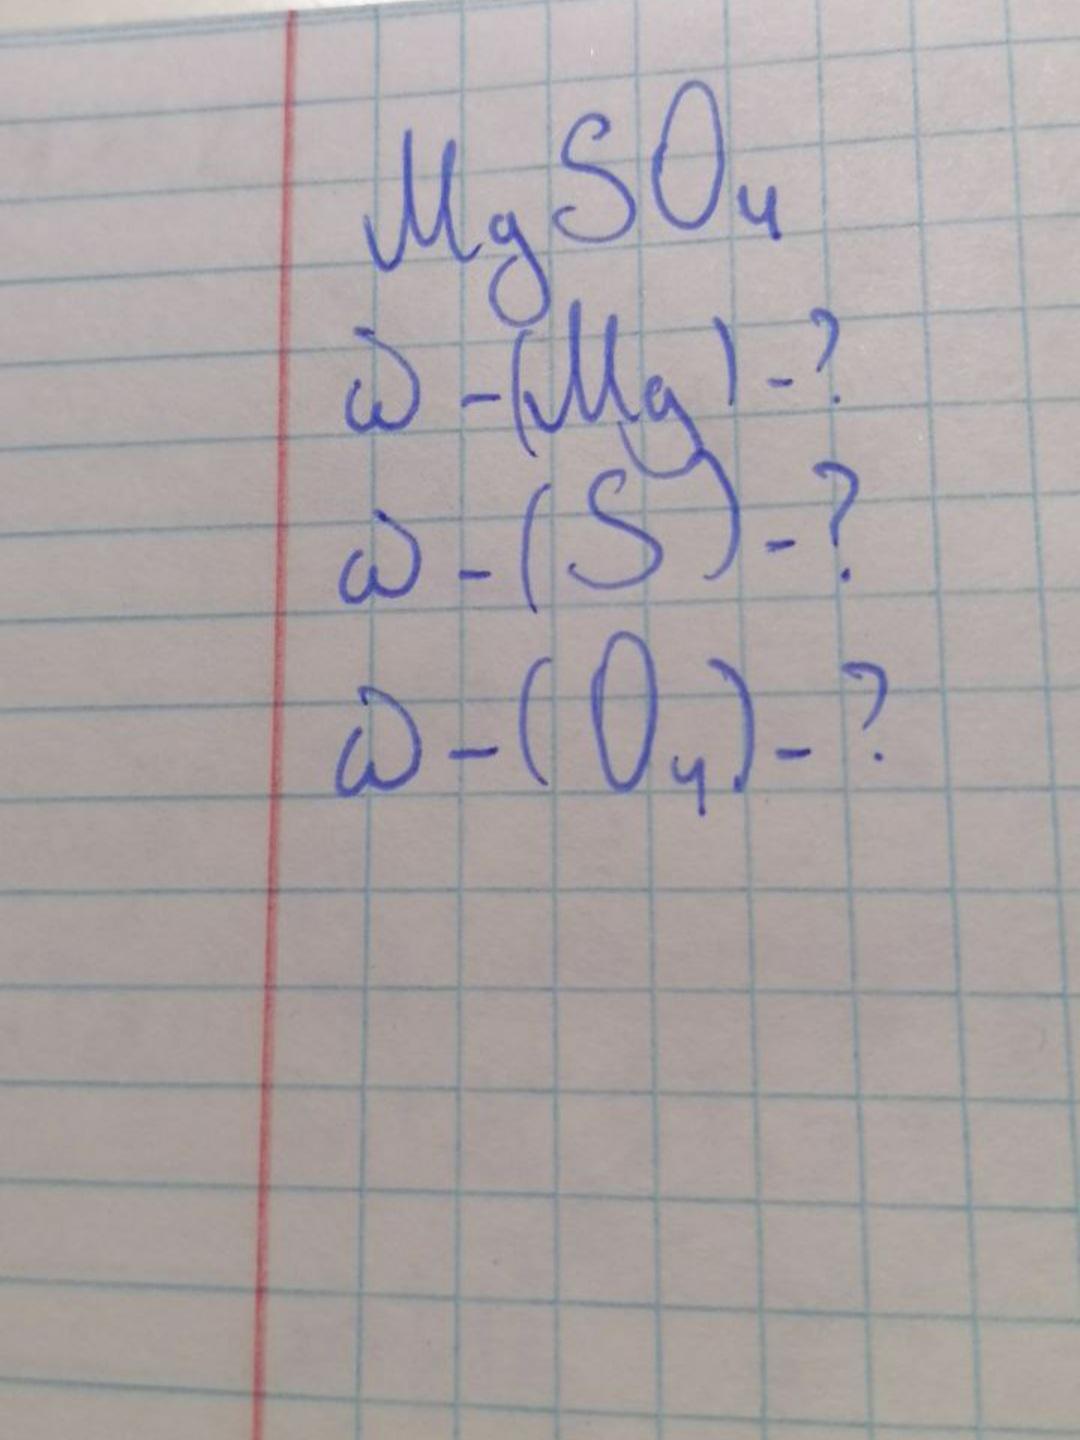 MgSO₄
ω -(Mg) -?
ω -(S) -?
ω -(O₄) -?